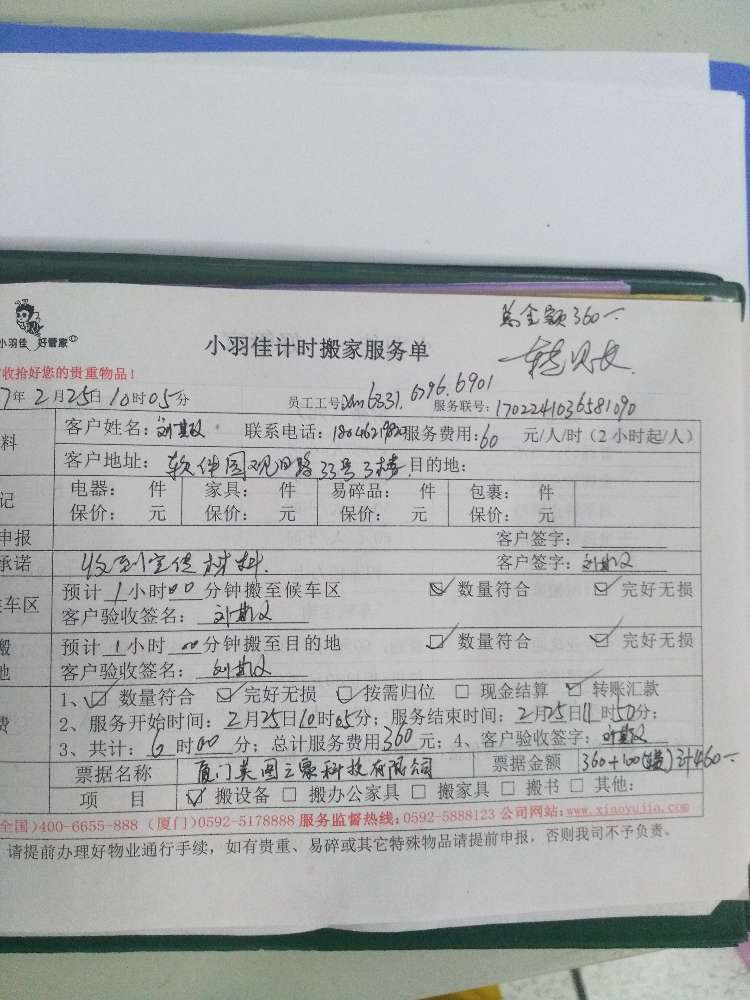 总金额360一
小羽佳 好管家
小羽佳计时搬家服务单
收拾好您的贵重物品！
7年2月25日10时05分
员工工号: 6331. 6796. 6901
服务联号：1702241036581090
料
客户姓名： 联系电话： 服务费用：60 元/人/时（2小时起/人）
客户地址：软件园观日路33号3楼 目的地：
记
电器： 件 家具： 件 易碎品： 件 包裹： 件
保价： 元 保价： 元 保价： 元 保价： 元
申报 客户签字：
承诺 收到宣传材料. 客户签字：
车区
预计1小时00分钟搬至候车区 数量符合 完好无损
客户验收签名：
搬
地
预计1小时00分钟搬至目的地 数量符合 完好无损
客户验收签名：
费
1、 数量符合 完好无损 按需归位 现金结算 转账汇款
2、服务开始时间：2月25日10时05分；服务结束时间：2月25日11时50分；
3、共计：6时00分；总计服务费用360元；4、客户验收签字：
票据名称 厦门美图之家科技有限公司 票据金额 360+100 计460一
项 目 搬设备 搬办公家具 搬家具 搬书 其他：
全国）400-6655-888（厦门）0592-5178888 服务监督热线：0592-5888123 公司网站：www.xiaoyujia.com
请提前办理好物业通行手续，如有贵重、易碎或其它特殊物品请提前申报，否则我司不予负责。